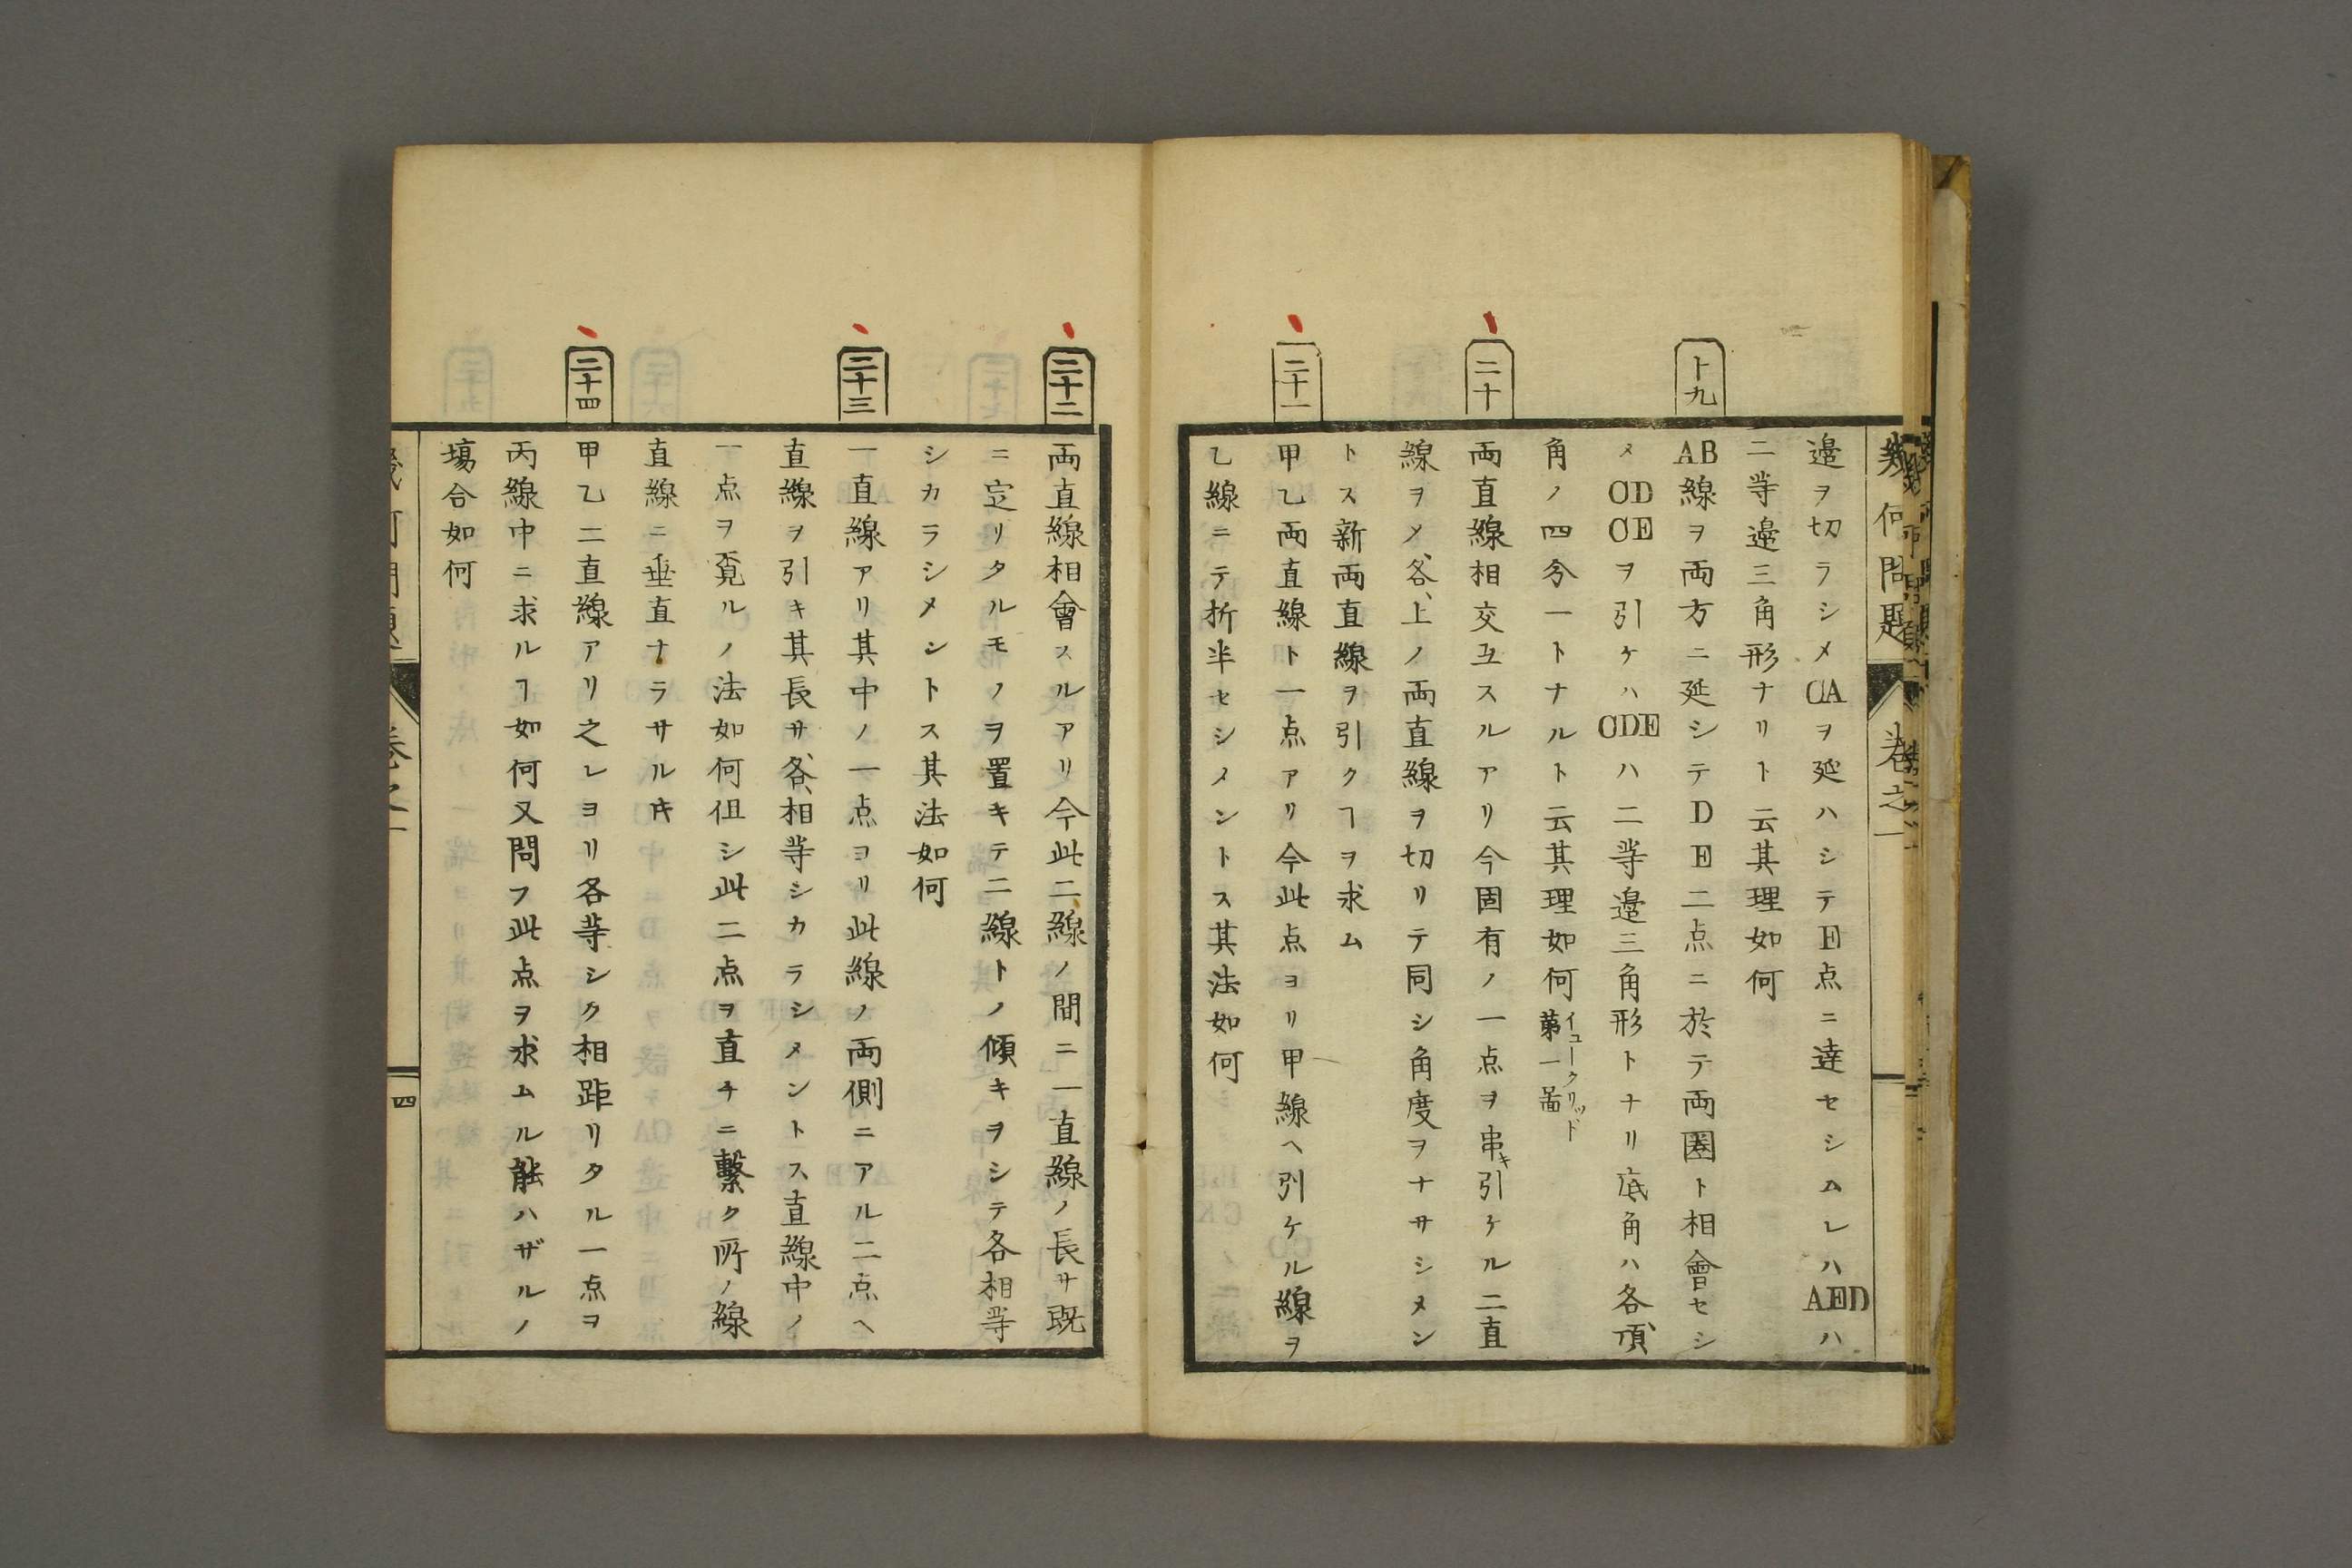 幾何問題
巻之一
邉ヲ切ラシメCAヲ延ハシテE点ニ達セシムレハAEDハ
二等邉三角形ナリト云其理如何
十九
AB線ヲ両方ニ延シテDE二点ニ於テ両圏ト相會セシ
メCDCEヲ引ケハCDEハ二等邉三角形トナリ底角ハ各頂
角ノ四分一トナルト云其理如何イュークリッド第一啚
二十
両直線相交互スルアリ今固有ノ一点ヲ串キ引ケル二直
線ヲメ各、上ノ両直線ヲ切リテ同シ角度ヲナサシメン
トス新両直線ヲ引クヿヲ求ム
二十一
甲乙両直線ト一点アリ今此点ヨリ甲線ヘ引ケル線ヲ
乙線ニテ折半セシメントス其法如何
二十二
両直線相會スルアリ今此二線ノ間ニ一直線ノ長サ既
ニ定リタルモノヲ置キテ二線トノ傾キヲシテ各相等
シカラシメントス其法如何
二十三
一直線アリ其中ノ一点ヨリ此線ノ両側ニアル二点ヘ
直線ヲ引キ其長サ各、相等シカラシメントス直線中ノ
一点ヲ覔ルノ法如何伹シ此二点ヲ直チニ繋ク所ノ線
直線ニ垂直ナラサル𪜈
二十四
甲乙二直線アリ之レヨリ各等シク相距リタル一点ヲ
丙線中ニ求ルヿ如何又問フ此点ヲ求ムル能ハザルノ
塲合如何
四